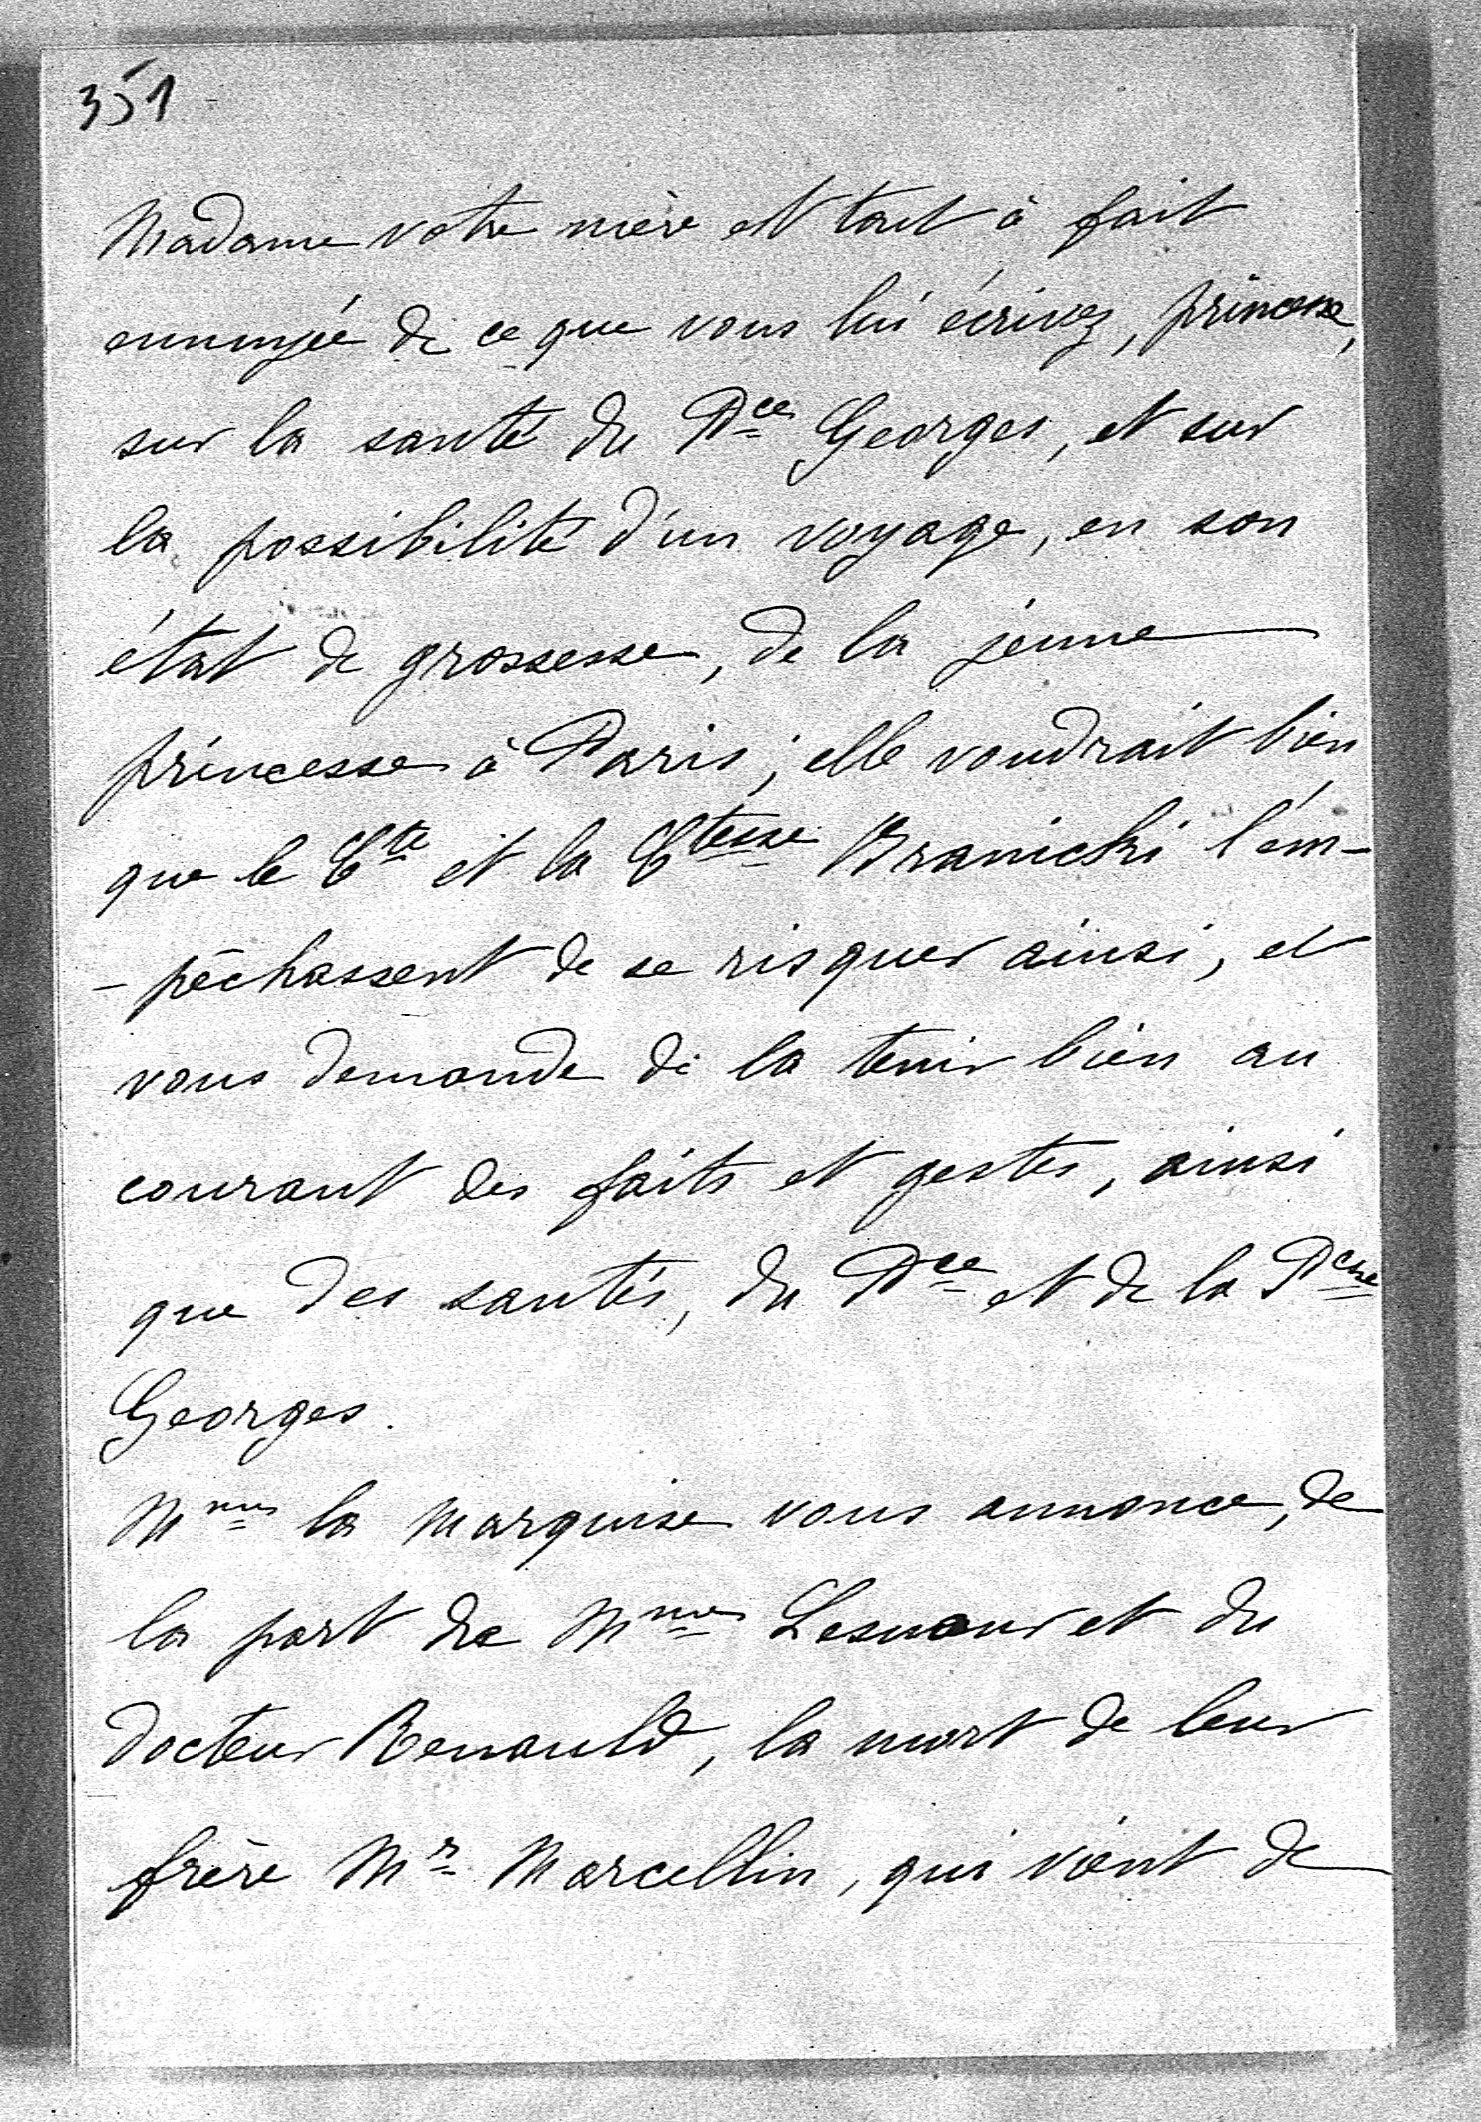 351
Madame votre mère est tout à fait
ennuyée de ce que vous lui écrivez, princesse,
sur la santé du Pce Georges, et sur
la possibilité d'un voyage, en son
état de grossesse, de la jeune
princesse à Paris; elle voudrait bien
que le Cte et la Ctesse Branicki l'em-
-pêchassent de se risquer ainsi, et
vous demande de la tenir bien au
courant des faits et gestes, ainsi
que des santés, du Pce et de la Pcsse
Georges.
Mme la marquise vous annonce, de
la part de Mme et du
docteur Renauld, la mort de leur
frère Mr Marcellin, qui vient de